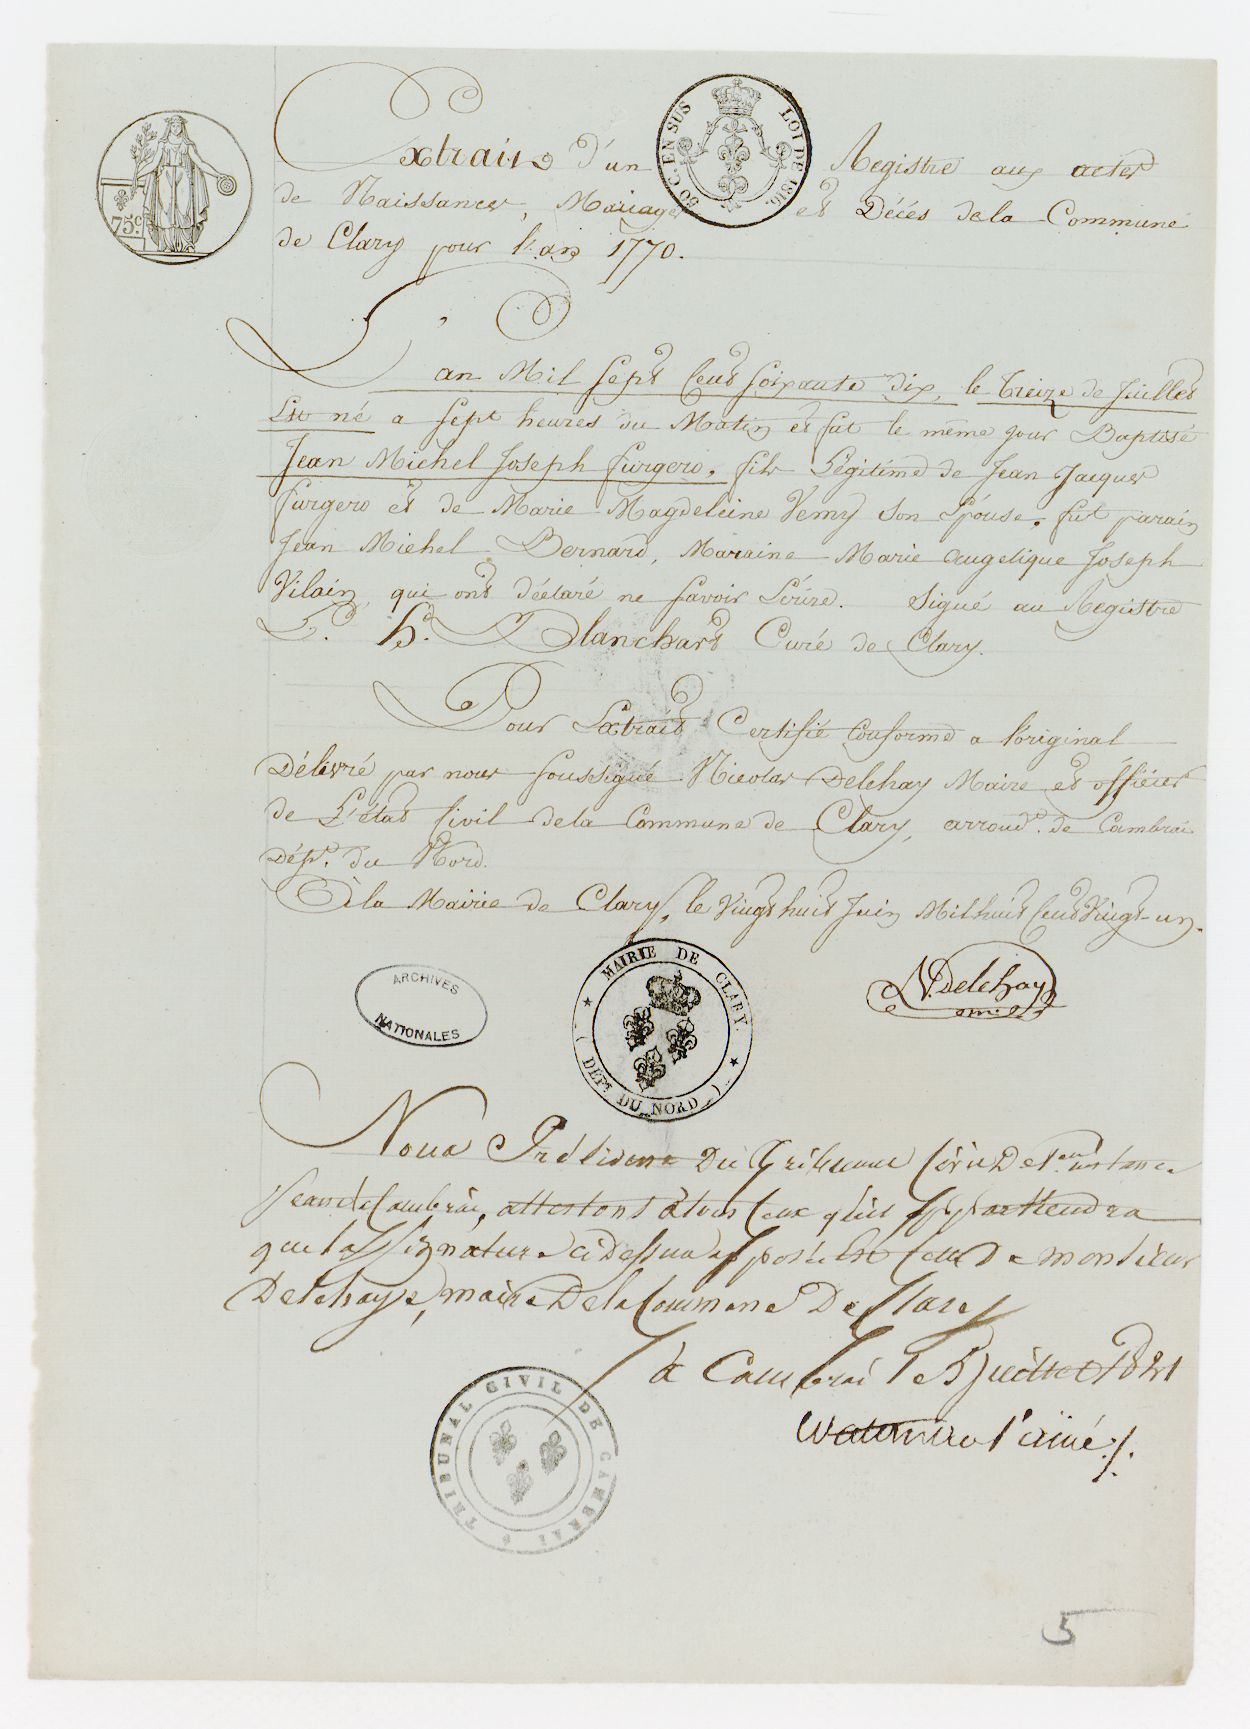 Extrait d'un Registre aux actes
de Naissances, Mariages et Décés de la Commune
de Clary pour l'an 1770.
75 c.
50 C. EN SUS LOI DE 1816.
L'an Mil Sept Cent Soixante dix, le treize de Juillet
Est né a Sept heures du Matin et fut le même jour Baptisé
Jean Michel Joseph Furgero, fils Légitime de Jean Jacques
Furgero et de Marie Magdeleine Vémy Son Epouse, fut parain
Jean Michel Bernard, Maraine Marie Angelique Joseph
Vilain qui ont déclaré ne Savoir Ecrire. Signé au Registre
Blanchard Curé de Clary.
Pour Extrait Certifié Conforme a l'original
Délivré par nous Soussigné Nicolas Delehay Maire et officier
de L'état Civil de la Commune de Clary, arrond.t de Cambrai
Dép.t du Nord.
À la Mairie de Clary, le Vingt huit Juin Mil huit Cent Vingt-un.
N. Delehay
ARCHIVES
NATIONALES
MAIRIE DE CLARY.
( DÉPt. DU NORD )
Nous Président Du Tribunal Civil De 1ere instance
Seant à Cambrai, attestons à tous Ceux qu'il appartiendra
que la Signature ci Dessus apposée Est Celle De monsieur
Delehaye, maire De la Commune De Clary
à Cambrai le 5 Juillet 1821
l'ainé
TRIBUNAL CIVIL DE CAMBRAI
5